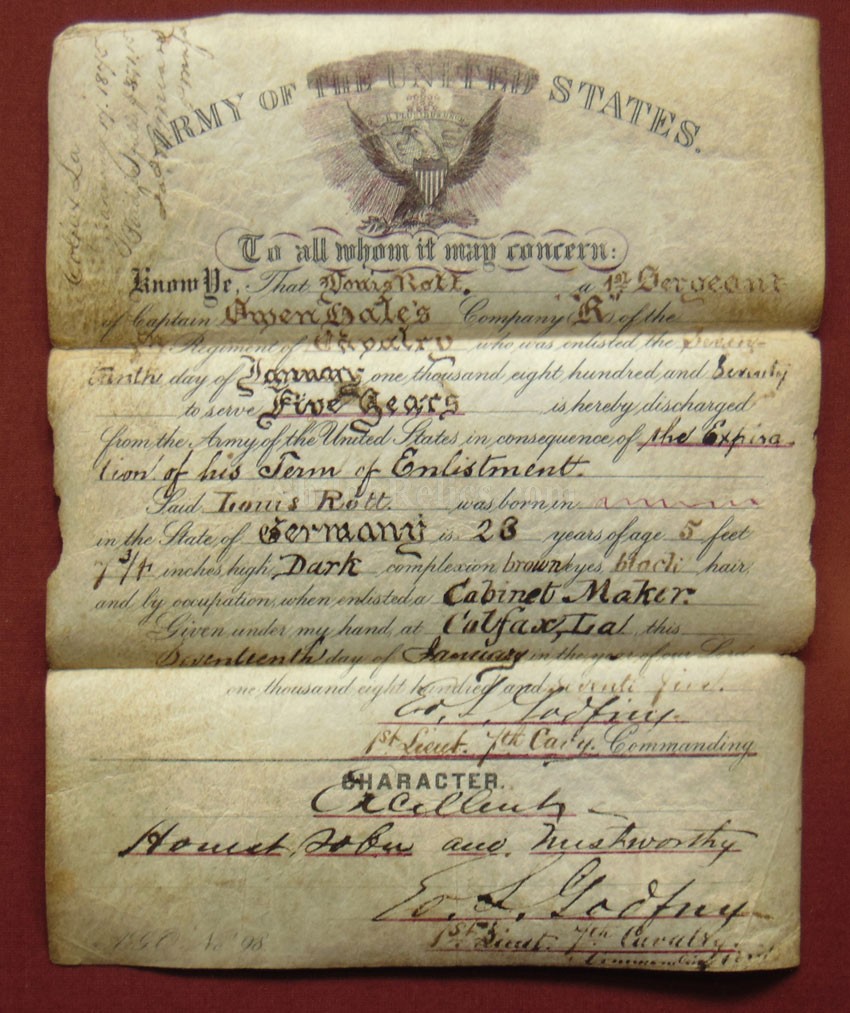 Colfax La
January 17. 1875
Paid
ARMY OF THE UNITED STATES.
To all whom it may concern:
Know Ye, That Louis Rott. a 1st Sergeant
of Captain Owen Hale's Company "K" of the
Regiment of Cavalry who was enlisted the Seven-
teenth day of January one thousand eight hundred and Seventy
to serve Five Years is hereby discharged
from the Army of the United States in consequence of the Expira-
tion of his Term of Enlistment.
Said Louis Rott. was born in
in the State of Germany is 28 years of age 5 feet
7 3/4 inches high, Dark complexion brown eyes, black hair,
and by occupation, when enlisted a Cabinet Maker.
Given under my hand, at Colfax, La, this
Seventeenth day of January in the year of our Lord
one thousand eight hundred and seventy five.
Ed. S. Godfrey.
1st Lieut. 7th Cavy. Commanding
CHARACTER.
Excellent, -
Honest, Sober and Trustworthy
Ed. S. Godfrey
1st Lieut. 7th Cavalry.
Commanding
No 98